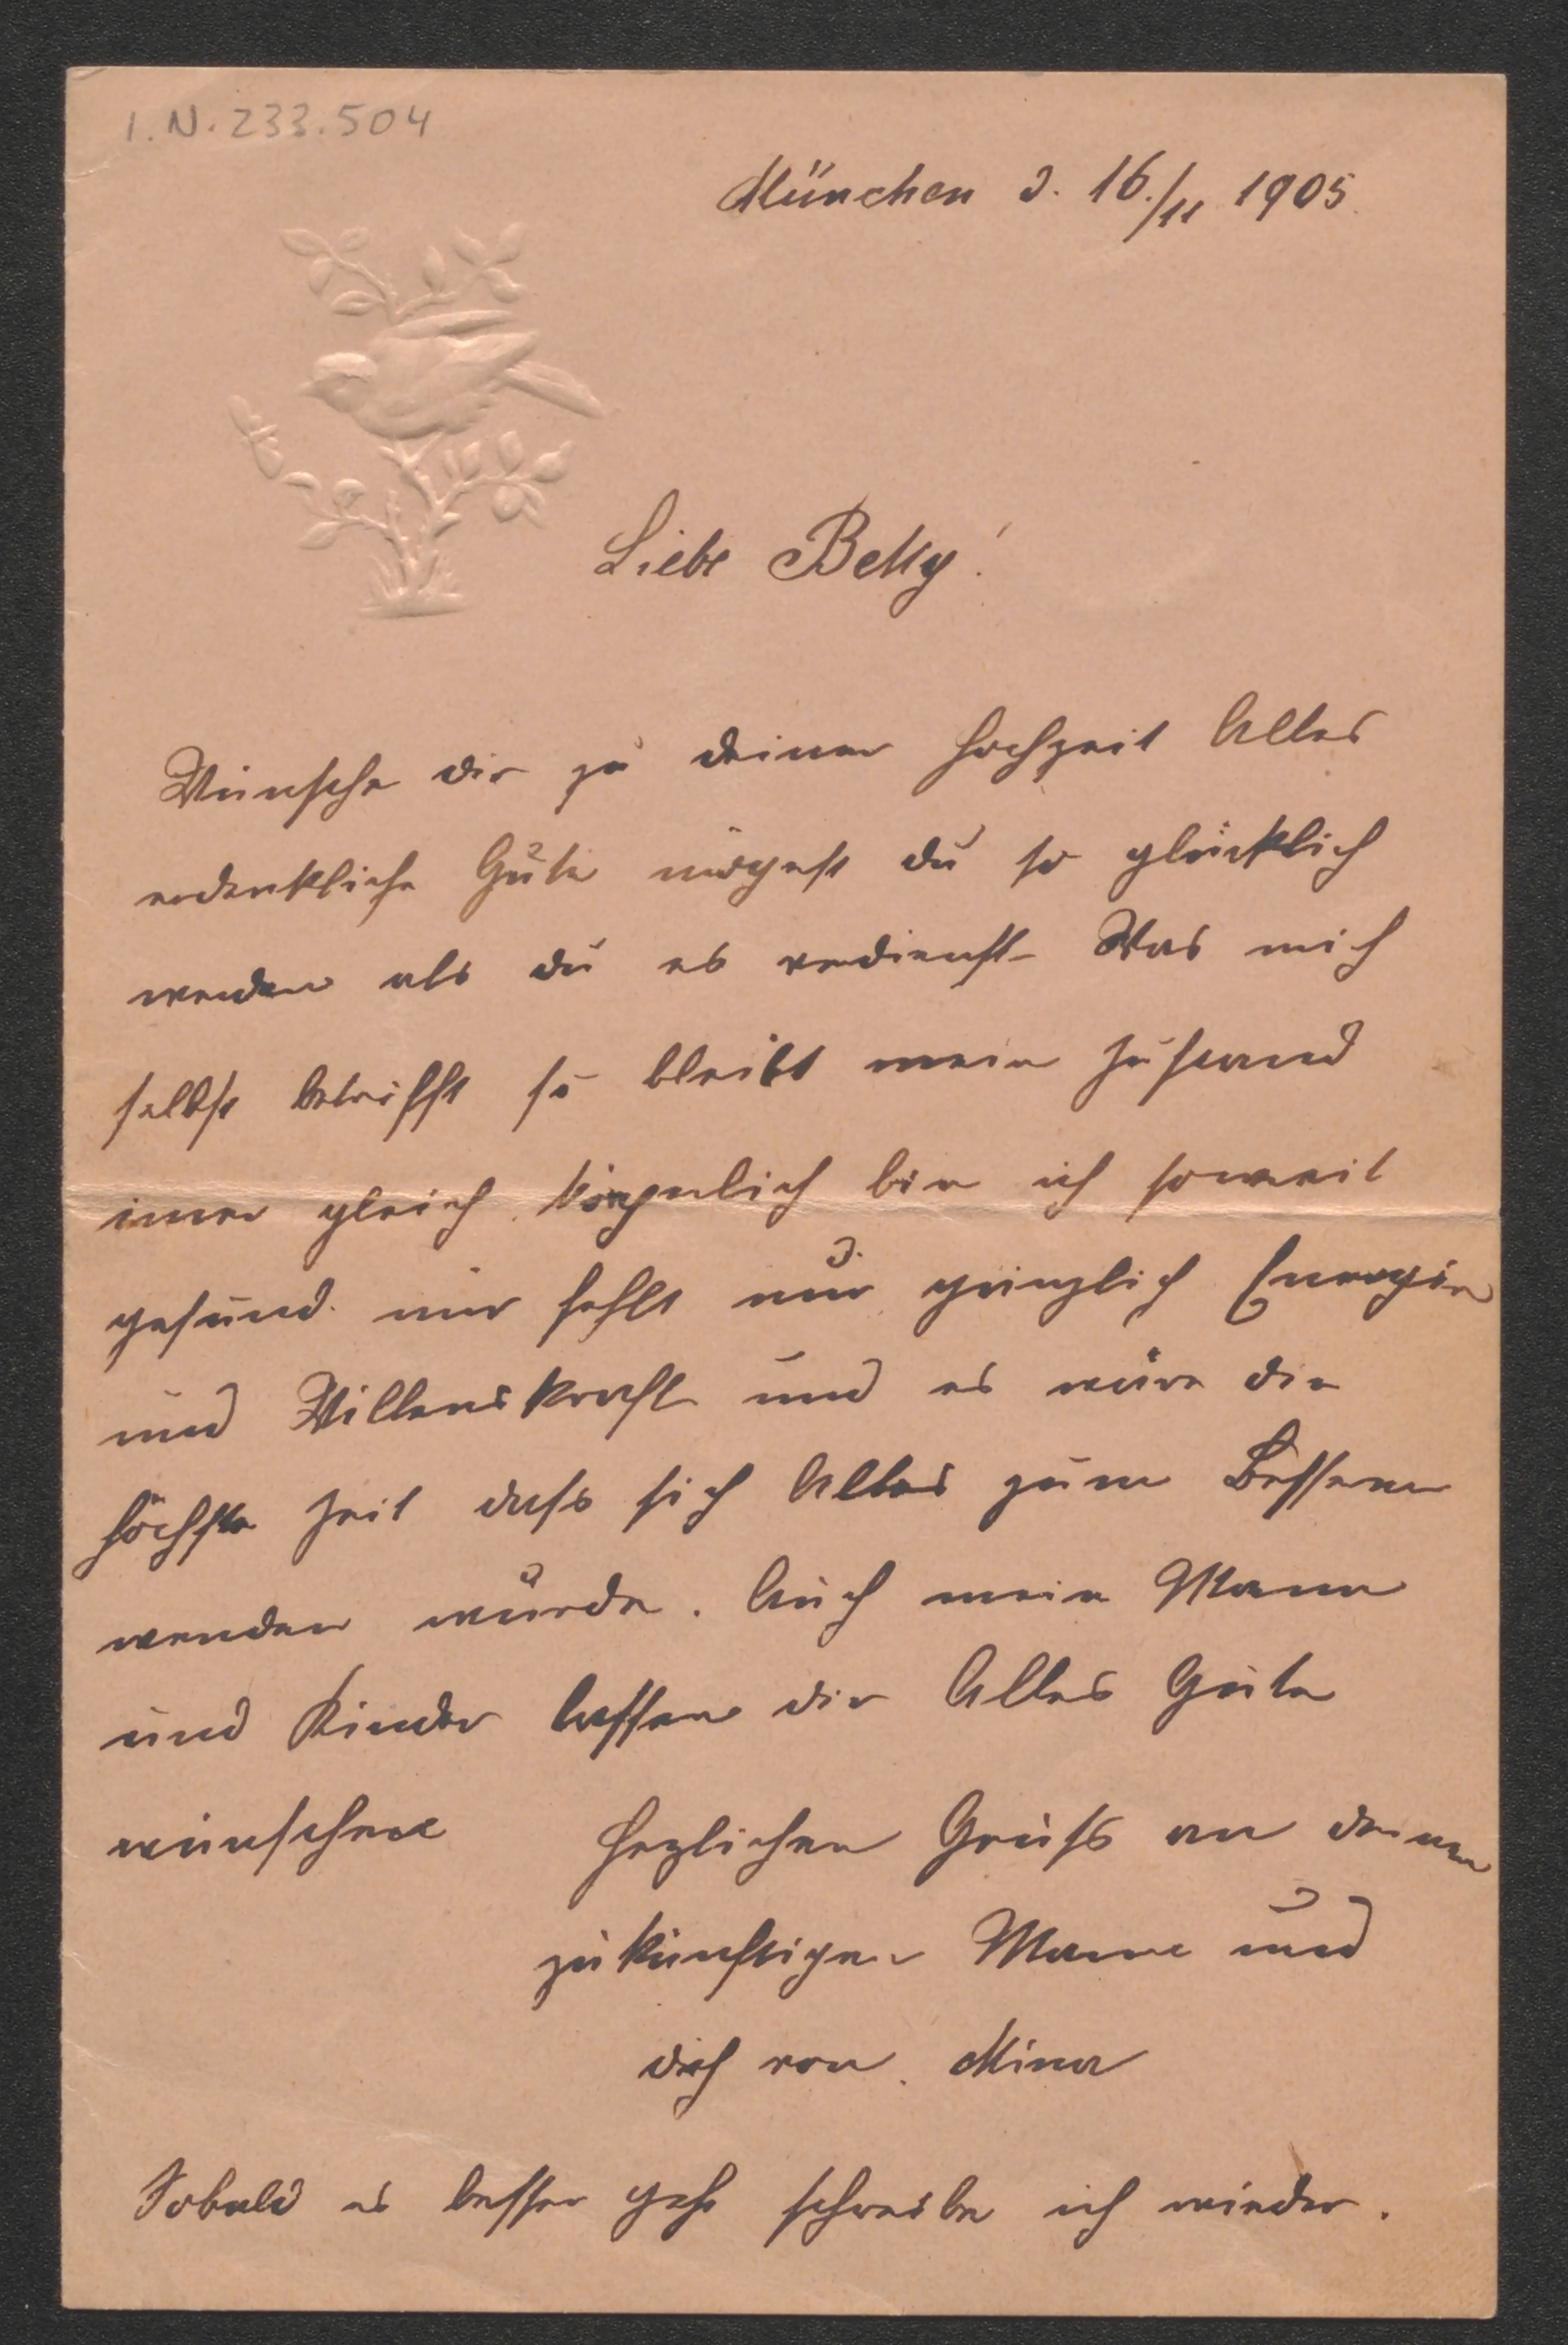 I.N. 233.504
München d. 16./11 1905
Liebe Betty!
Wünsche dir zu deiner Hochzeit Alles
erdenkliche Gute mögest du so glücklich
werden als du es verdienst Was mich
selbst betrifft so bleibt mein Zustand
imer gleich. Körperlich bin ich soweit
gesund. mir fehlt nur gänzlich Energie
und Willenskraft und es wäre die
höchste Zeit dass sich Alles zum Bessern
wenden würde. Auch mein Mann
und Kinder lassen dir Alles Gute
wünschen
Herzlichen Gruß an deinen
zukünftigen Mann und
dich von. Mina
Sobald es besser geht schreibe ich wieder.